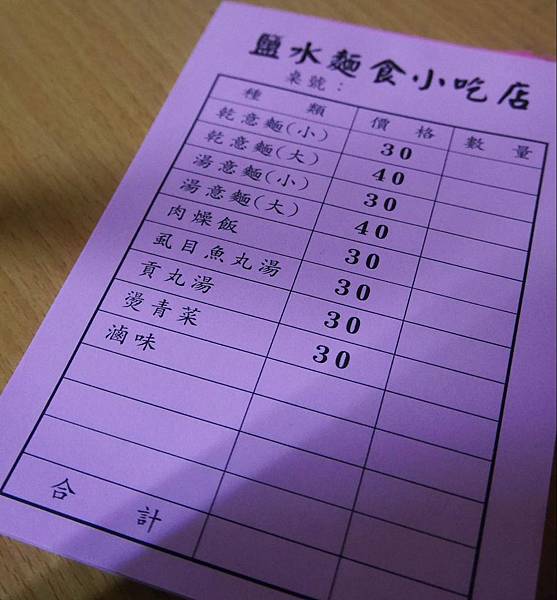 鹽水麵食小吃店
桌號：
種類 價格 數量
乾意麵(小) 30
乾意麵(大) 40
湯意麵(小) 30
湯意麵(大) 40
肉燥飯 30
虱目魚丸湯 30
貢丸湯 30
燙青菜 30
滷味
合計